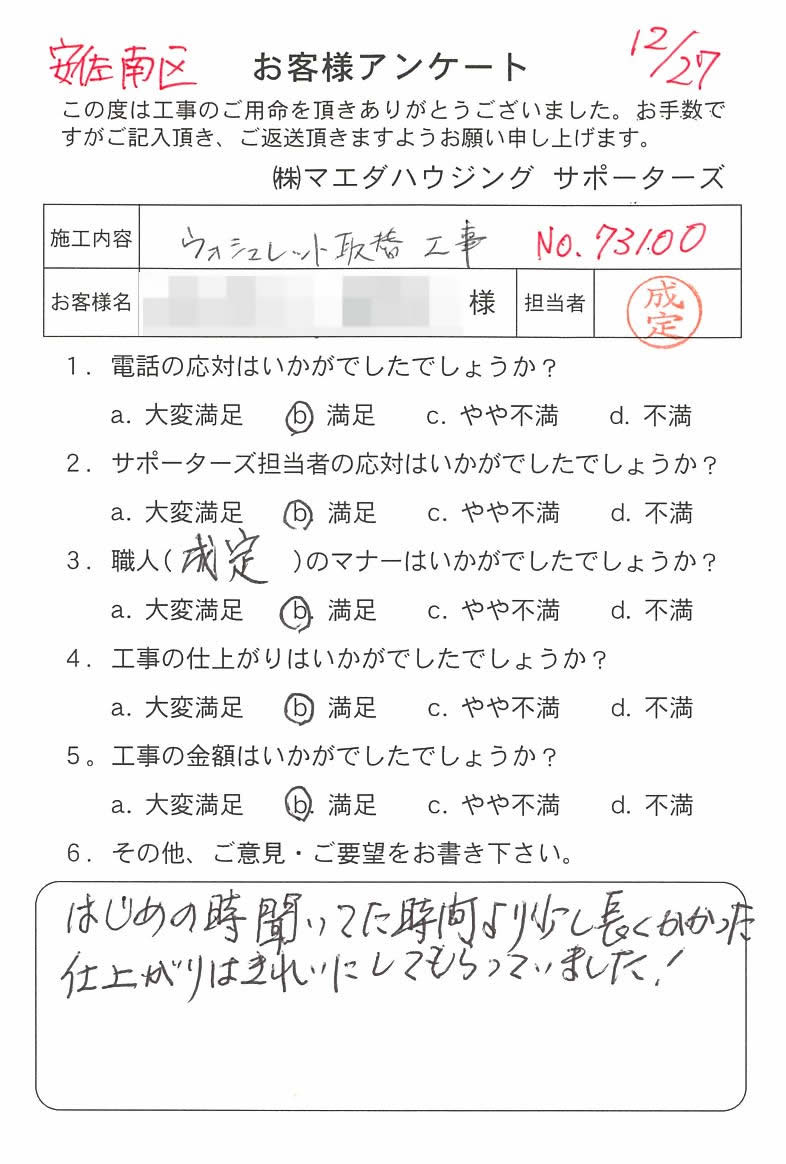 安佐南区 お客様アンケート 12/27
この度は工事のご用命を頂きありがとうございました。お手数で
すがご記入頂き、ご返送頂きますようお願い申し上げます。
㈱マエダハウジング サポーターズ
施工内容 ウォシュレット取替工事 No.73100
お客様名 様 担当者 成定
1. 電話の応対はいかがでしたでしょうか？
a. 大変満足 b 満足 c. やや不満 d. 不満
2. サポーターズ担当者の応対はいかがでしたでしょうか？
a. 大変満足 b. 満足 c. やや不満 d. 不満
3. 職人(成定)のマナーはいかがでしたでしょうか？
a. 大変満足 b. 満足 c. やや不満 d. 不満
4. 工事の仕上がりはいかがでしたでしょうか？
a. 大変満足 b 満足 c. やや不満 d. 不満
5。工事の金額はいかがでしたでしょうか？
a. 大変満足 b. 満足 c. やや不満 d. 不満
6. その他、ご意見・ご要望をお書き下さい。
はじめの時聞いてた時間より少し長くかかった
仕上がりはきれいにしてもらっていました！